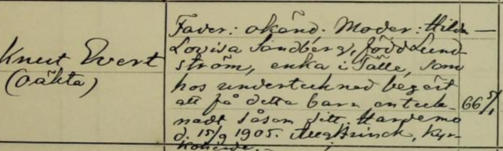 Knut Evert
(oäkta)
Fader: okänd. Moder: Hilda
Lovisa Sandberg, född Lund-
ström, enka i Tälle, som
hos undertecknad begärt
att få detta barn anteck-
nadt såsom sitt. Hardemo
d. 15/9 1905. Aug Brinck, Kyr-
66 5/1